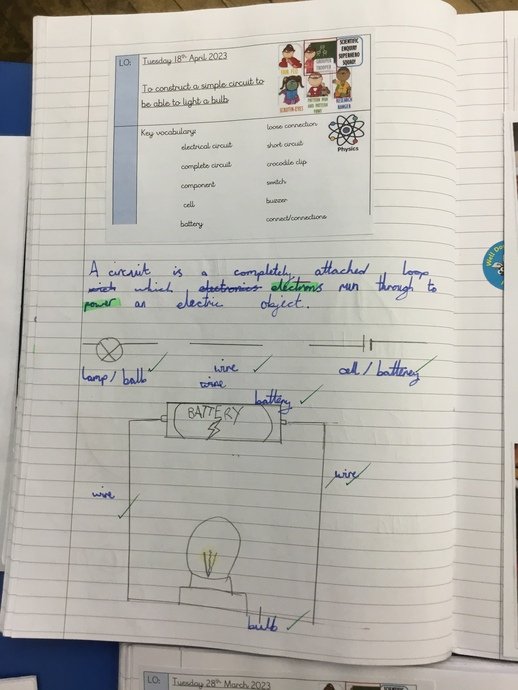 LO:
Tuesday 18th April 2023
To construct a simple circuit to
be able to light a bulb
SCIENTIFIC
ENQUIRY
SUPERHERO
SQUAD!
Key vocabulary:
electrical circuit
complete circuit
component
cell
battery
loose connection
short circuit
crocodile clip
switch
buzzer
connect/connections
Physics
Well Do
A circuit is a completely attached loop
which electronics electrons run through to
power an electric object.
lamp / bulb
wire
wire
cell / batterey
battery
BATTERY
wire
wire
bulb
LO:
Tuesday 28th March 2023